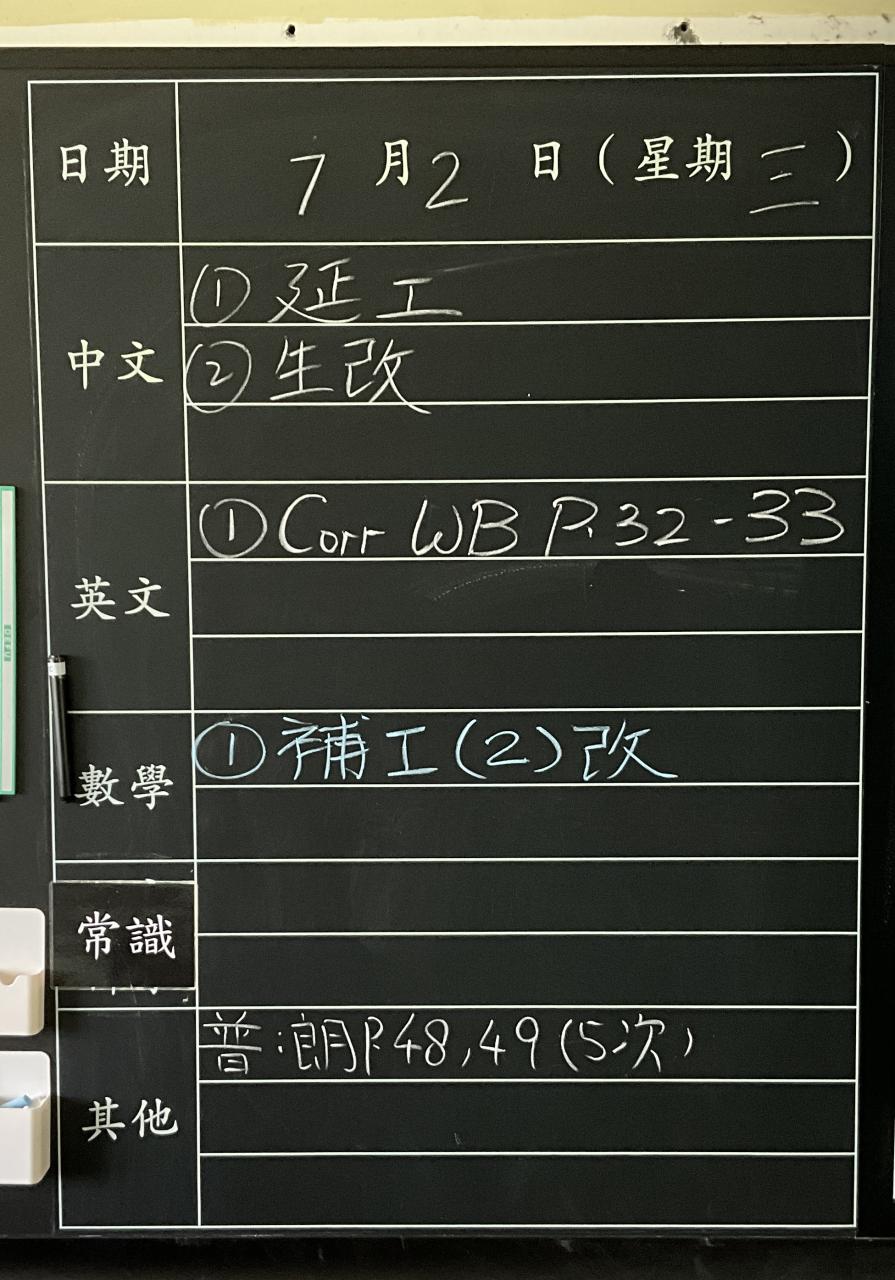 日期 7月2日(星期三)
中文
①延工
②生改
英文
①Corr WB P.32-33
數學
①補工(2)改
常識
其他
普:朗P.48,49(5次)